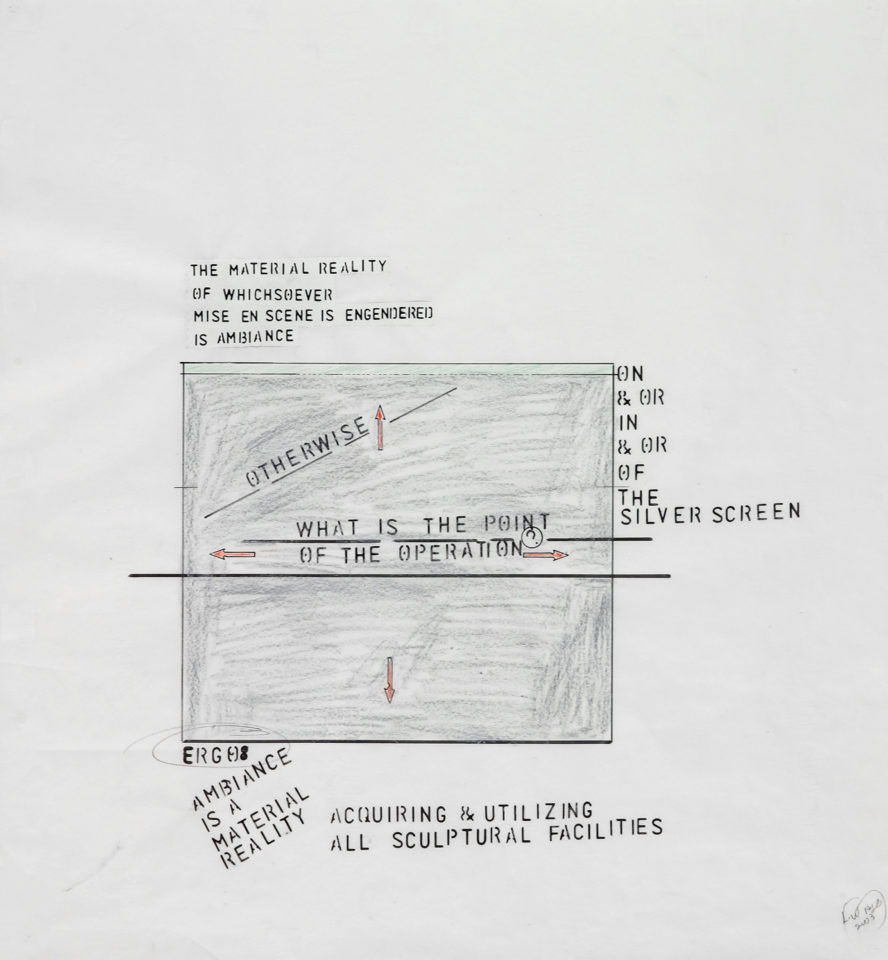 THE MATERIAL REALITY
OF WHICHSOEVER
MISE EN SCENE IS ENGENDERED
IS AMBIANCE
ON
& OR
IN
& OR
OF
THE
SILVER SCREEN
OTHERWISE
WHAT IS THE POINT
?
OF THE OPERATION
ERGO:
AMBIANCE
IS A
MATERIAL
REALITY
ACQUIRING & UTILIZING
ALL SCULPTURAL FACILITIES
2003